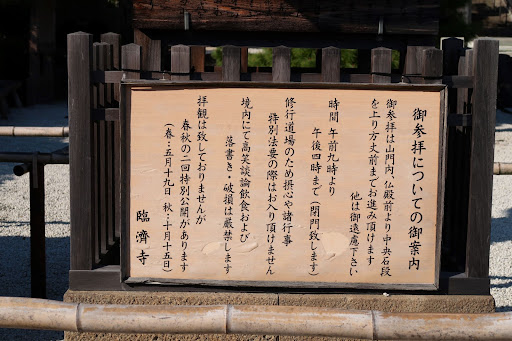 御参拝についての御案内
御参拝は山門内、仏殿前より中央石段
を上り方丈前までお進み頂けます
他は御遠慮下さい
時間 午前九時より
午後四時まで(閉門致します)
修行道場のため摂心や諸行事
特別法要の際はお入り頂けません
境内にて高笑談論飲食および
落書き・破損は厳禁します
拝観は致しておりませんが
春秋の二回特別公開があります
(春:五月十九日 秋:十月十五日)
臨濟寺